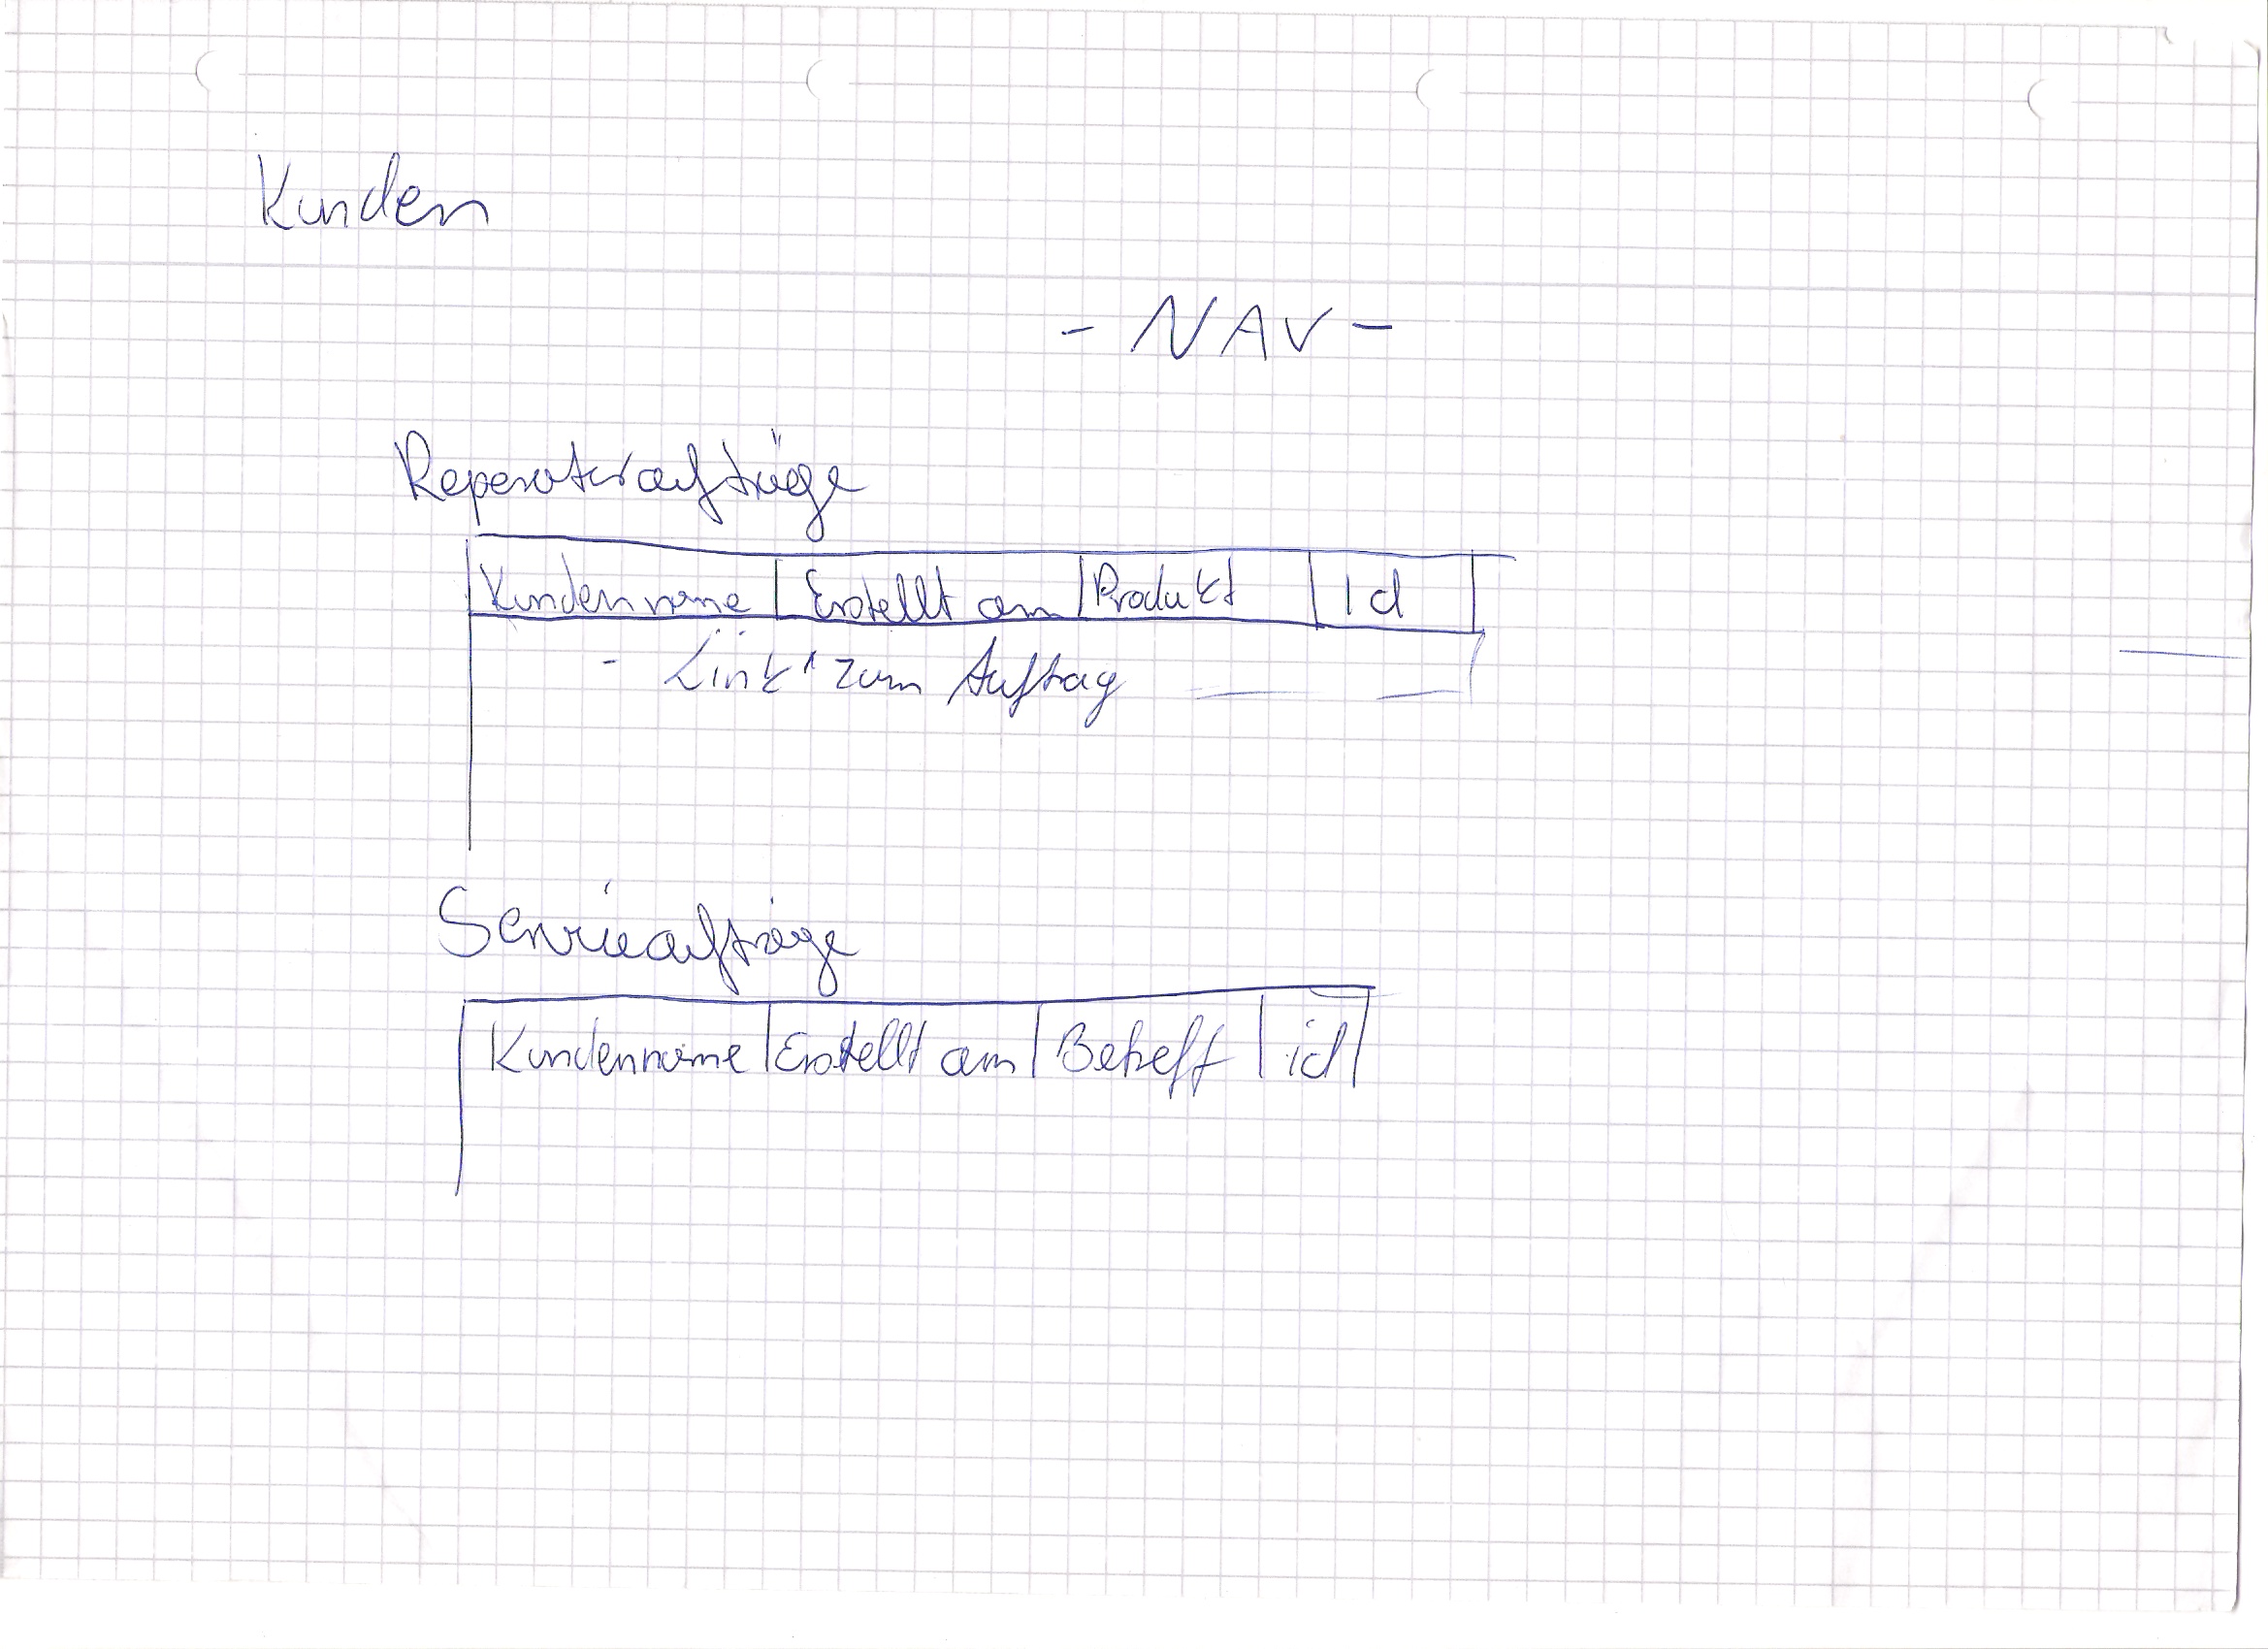 Kunden
- NAV -
Reperaturaufträge
Kundenname Erstellt am Produkt Id
- Link zum Auftrag
Serviceaufträge
Kundenname Erstellt am Betreff id